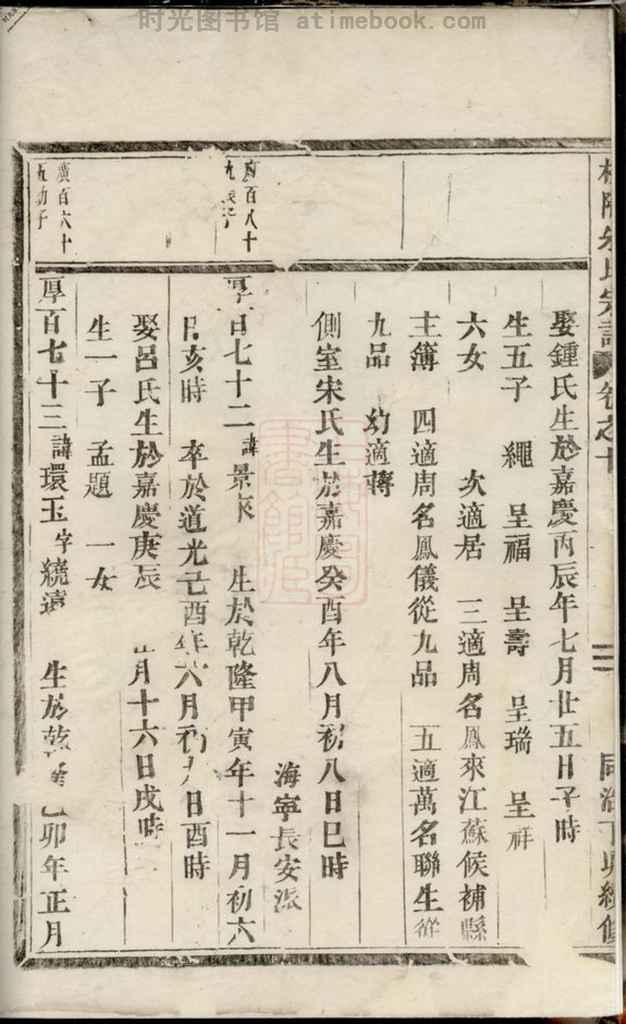 时光图书馆 atimebook.com
朱氏宗譜 卷之十 三 同治丁卯續修
娶鍾氏生於嘉慶丙辰年七月廿五日子時
生五子 繩 呈福 呈壽 呈瑞 呈祥
六女 次適居 三適周名鳳來江蘇候補縣
主簿 四適周名鳳儀從九品 五適萬名聯生從
九品 幼適蔣
側室宋氏生於嘉慶癸酉年八月初八日巳時
海寧長安派
百八十
厚百七十二 諱景 生於乾隆甲寅年十一月初六
日亥時 卒於道光己酉年六月初九日酉時
娶呂氏生於嘉慶庚辰 月十六日戌時
生一子 孟題 一女
廣百六十
五幼子
厚百七十三 諱環玉 字繞遠 生於乾隆 卯年正月